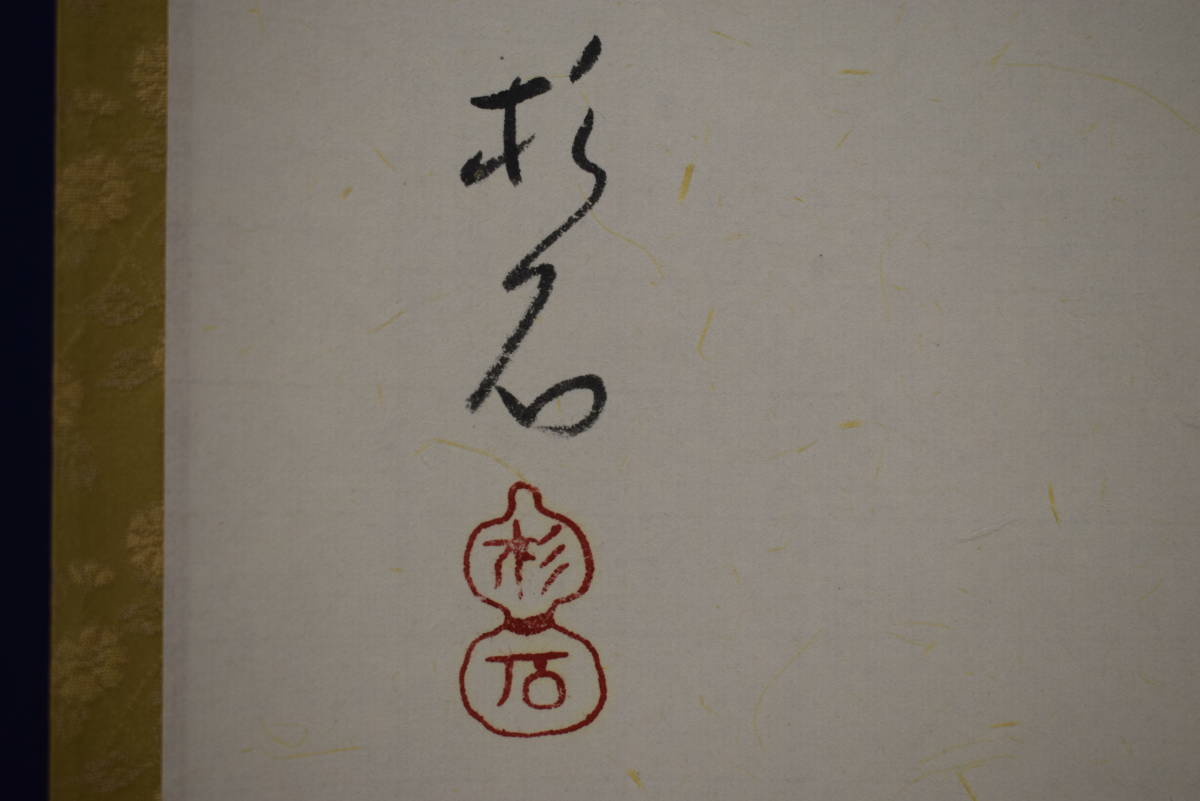 杉石
杉石